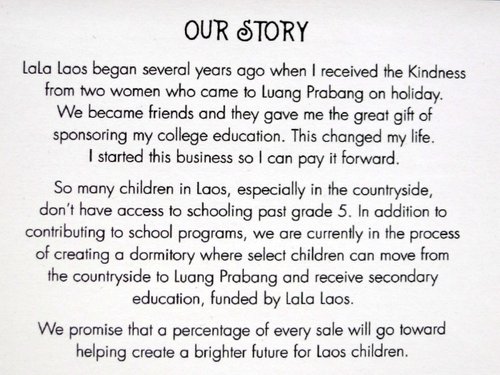 OUR STORY
LaLa Laos began several years ago when I received the Kindness
from two women who came to Luang Prabang on holiday.
We became friends and they gave me the great gift of
sponsoring my college education. This changed my life.
I started this business so I can pay it forward.
So many children in Laos, especially in the countryside,
don't have access to schooling past grade 5. In addition to
contributing to school programs, we are currently in the process
of creating a dormitory where select children can move from
the countryside to Luang Prabang and receive secondary
education, funded by LaLa Laos.
We promise that a percentage of every sale will go toward
helping create a brighter future for Laos children.